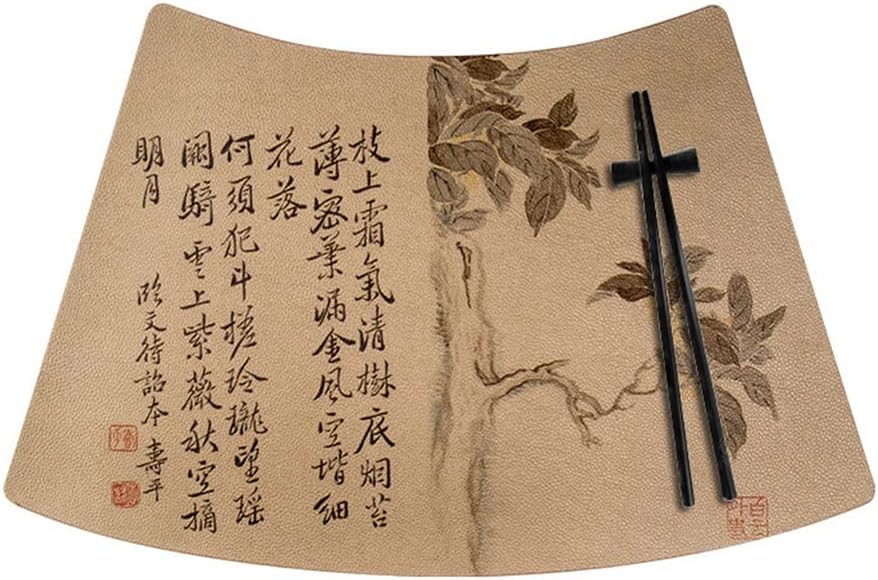 枝上霜氣清樹底烟苔
薄密葉漏金風空堦細
花落
何須犯斗槎玲瓏望瑶
闕騎雲上紫薇秋空摘
明月
臨文待詔本壽平